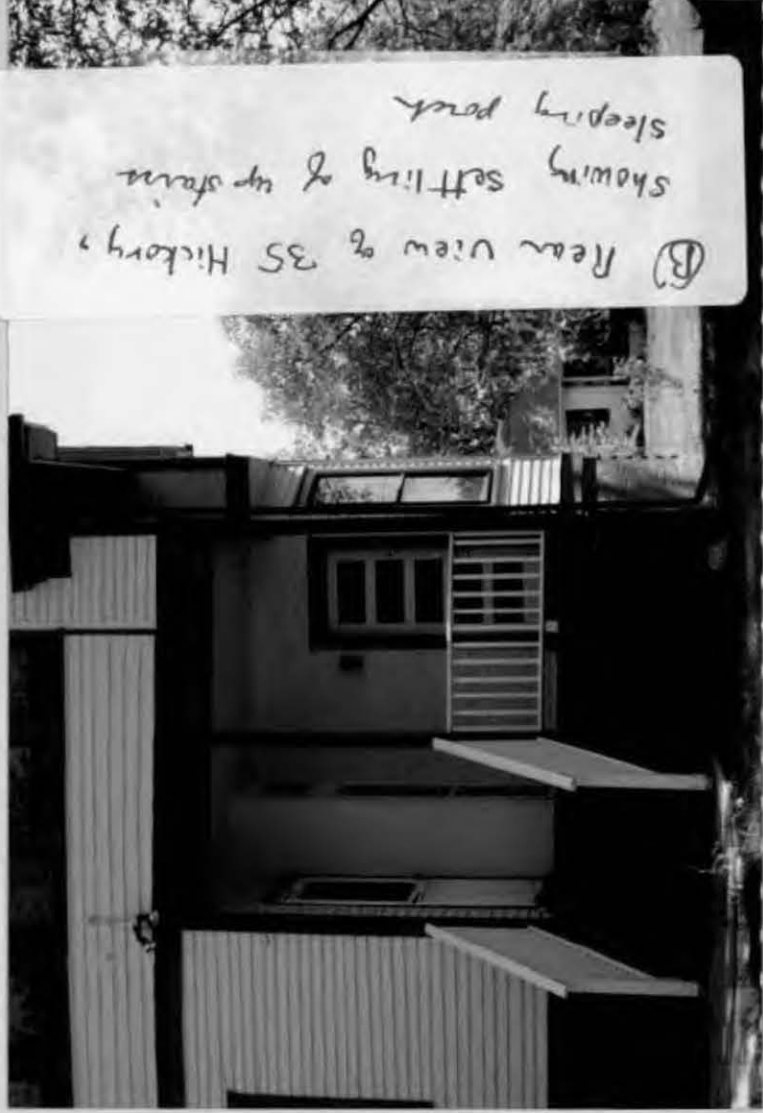 Ⓑ Rear view of 35 Hickory,
showing settling of upstairs
sleeping porch